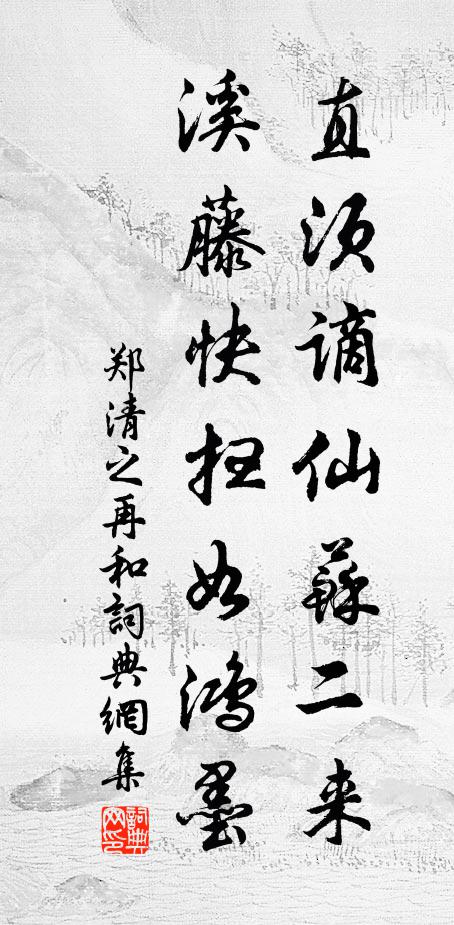 直须谪仙蘇二来
溪藤快扫如鸿墨
郑清之再和詞典網集
詞典网印